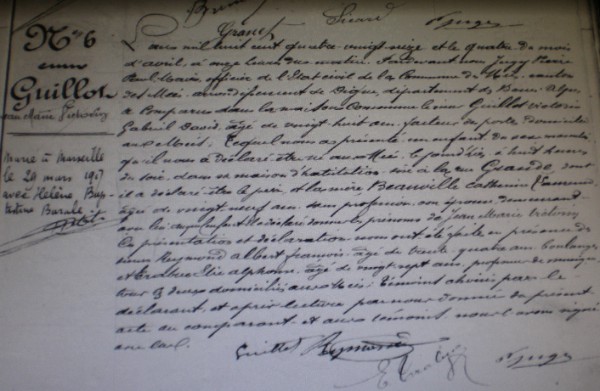 N° 6
Guillot
Jean Marie Victorin
Marié à Marseille
le 29 mars 19
avec Hélène
Barale
L'an mil huit cent quatre vingt seize et le quatre du mois
d'avril, à onze heures du matin. Par devant nous,
Paul officier de l'état civil de la Commune de canton
des Mées, arrondissement de Digne, département des Basses Alpes,
a Comparu dans la maison Commune le sieur Guillot Victorin
Gabriel âgé de vingt huit ans, facteur des postes, domicilié
aux Mées; Lequel nous a présenté un enfant du sexe masculin
qu'il nous a déclaré être né aux Mées, le à huit heures
du soir, dans sa maison d'habitation, sise à la rue Grande, dont
il a déclaré être le père, et la mère Beauville Catherine
âgée de vingt neuf ans, sans profession, son épouse, demeurant
avec lui; auquel enfant il a déclaré donner les prénoms de Jean Marie Victorin
Ces présentation et déclaration nous ont été faites en présence de
Reymond Albert François, âgé de trente quatre ans, boulanger
et Elie Alphonse, âgé de vingt sept ans, professeur de musique
tous les deux domiciliés aux Mées; Témoins choisis par le
déclarant, et après lecture par nous donnée du présent
acte au comparant et aux témoins, nous l'avons signé
avec eux.
Guillot Reymond